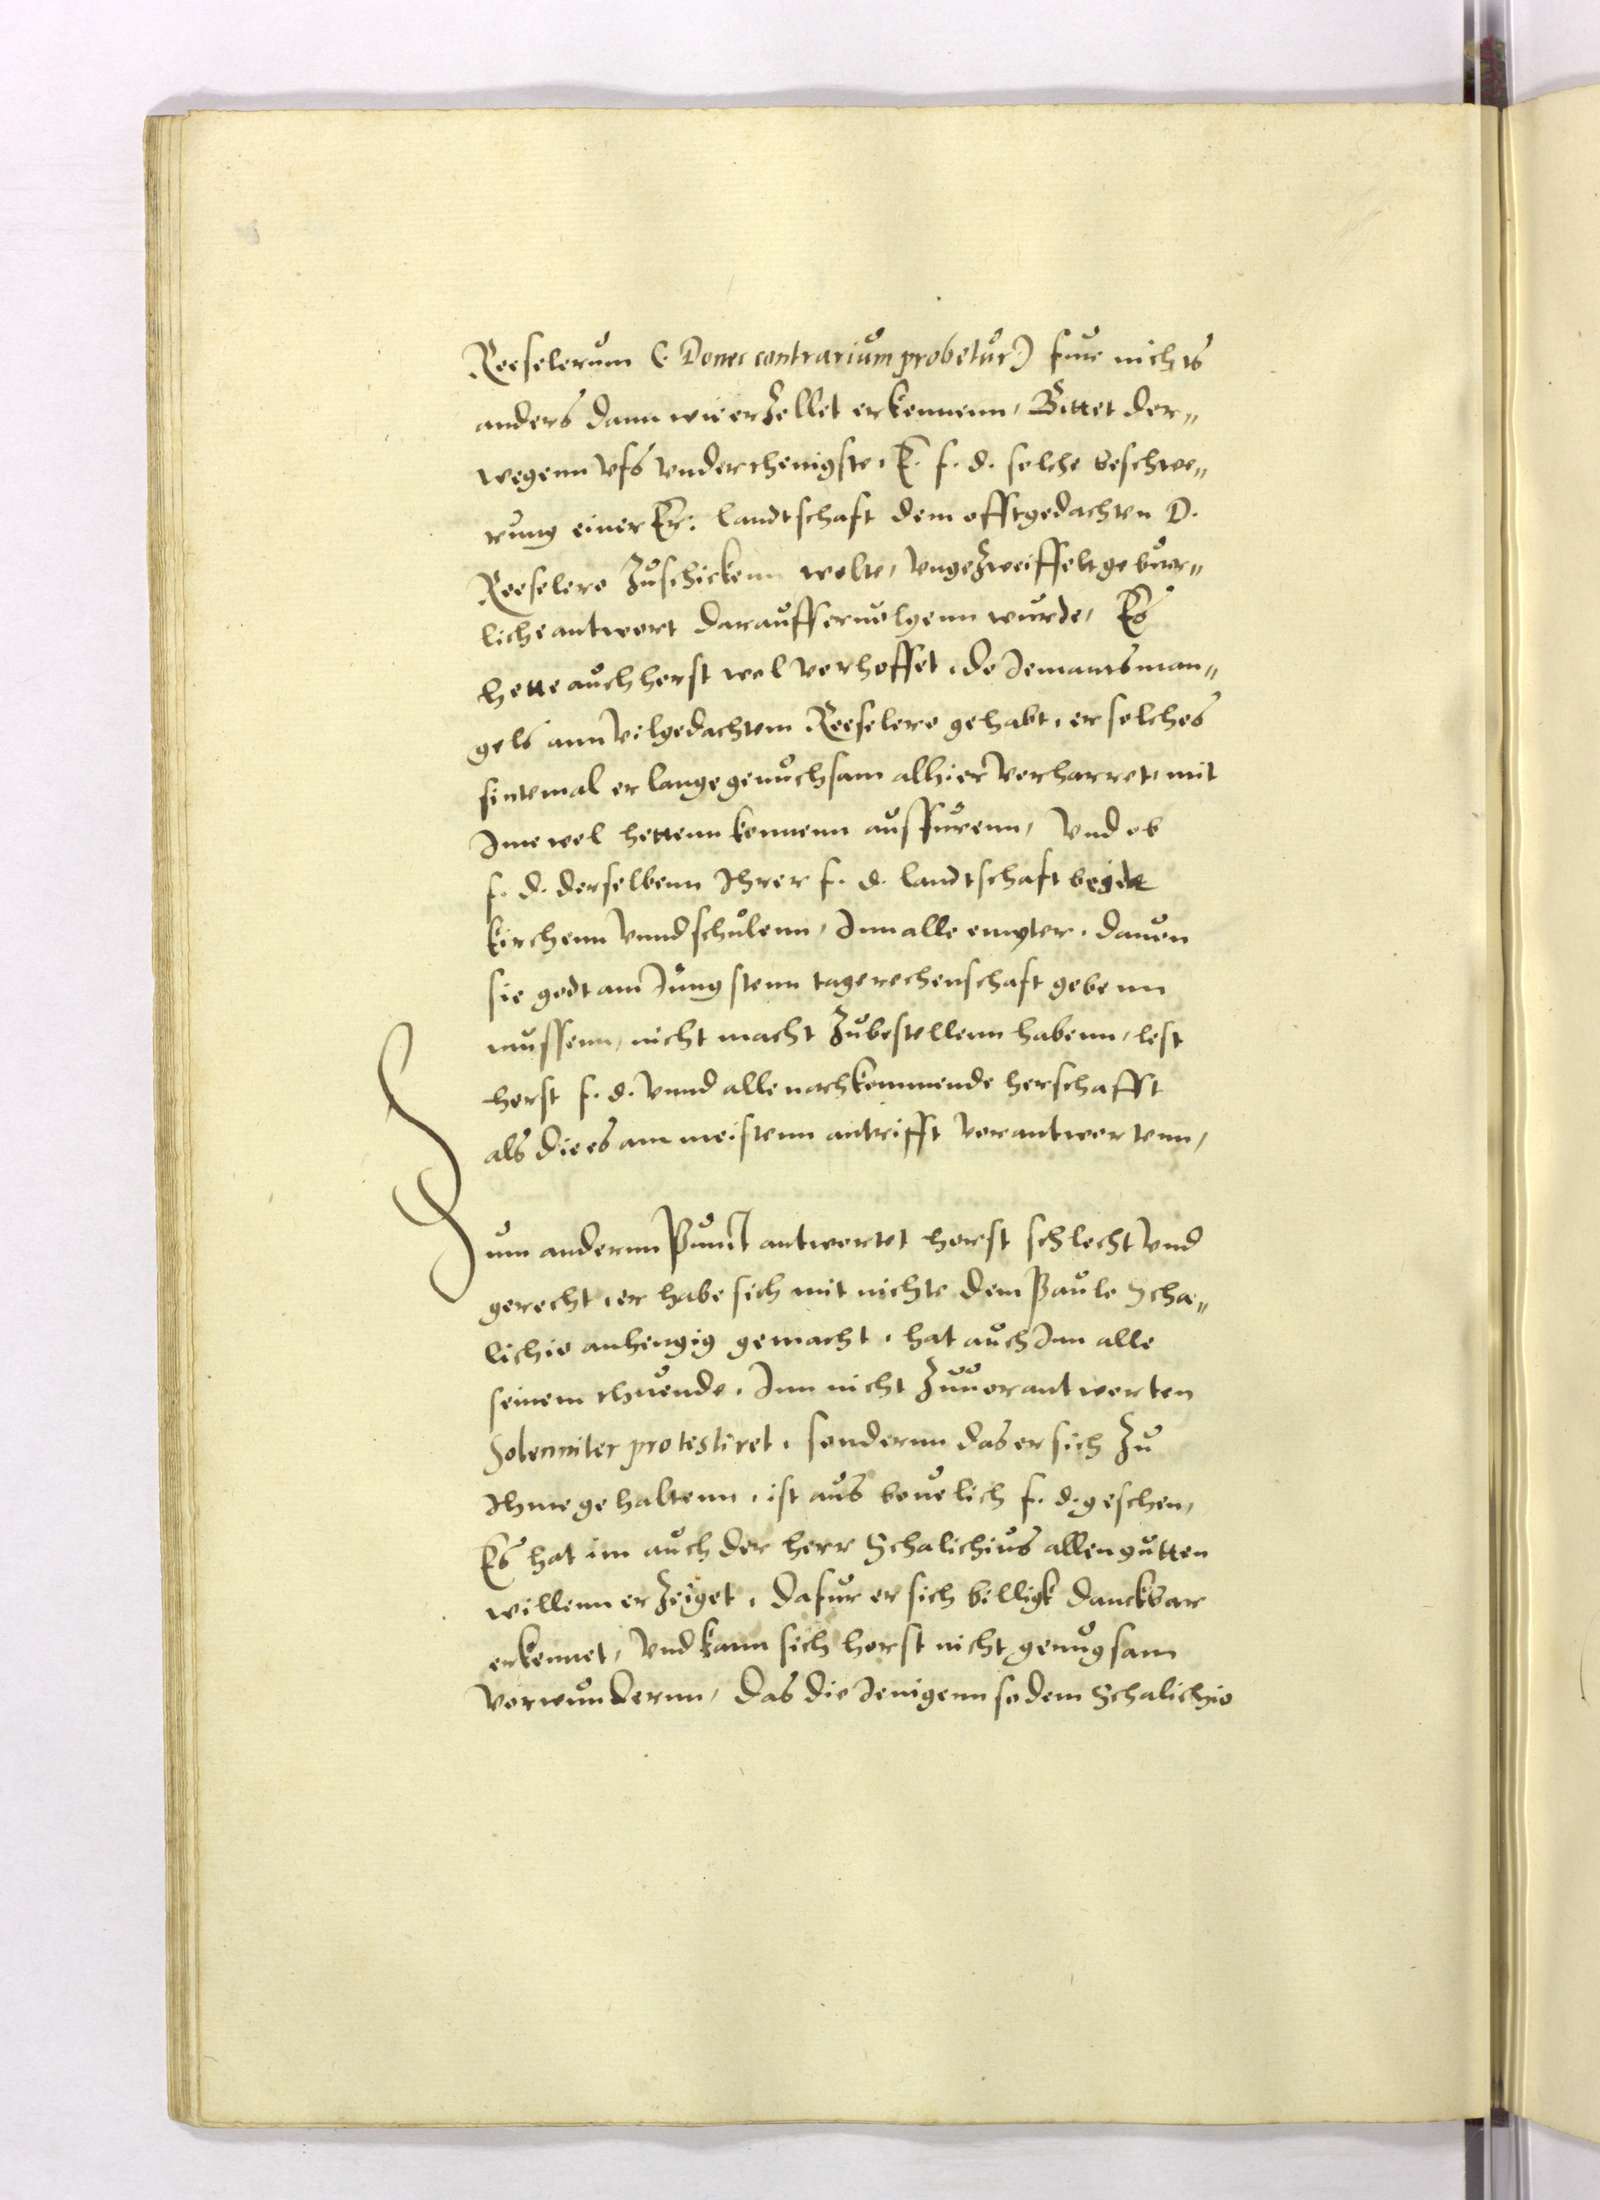 Roeselerum (Donec contrarium probetur) fuer nichts
anders dann wie erzellet erkennenn, Bittet der„
wegenn vfs vnderthenigste, E. f. d. solche beschwe„
rung einer Er: landtschaft dem offtgedachten D.
Roeselero zuschickenn wolte, vngezweiffelt gebuer„
liche antwort darauff ervolgenn wurde, Es
hette auch horst wol verhoffet, do Jemants man„
gels ann vilgedachtem Roeselero gehabt, er solches
sintemal er lange genuchsam alhier verharret, mit
Jme wol hettenn konnenn ausfurenn, vnd ob
f. d. derselbenn Ihrer f. d. landtschaft beide
kirchenn vnnd schulenn, Jnn alle empter, dauon
sie godt am Jungstenn tage rechenschaft gebenn
mussenn, nicht macht zubestellenn habenn, lest
horst f. d. vnnd alle nachkommende herschafft
als die es am meistenn antrifft verantwortenn,
Zum andernn Punct antwortet horst schlecht vnd
gerecht, er habe sich mit nichte dem Paulo Scha„
lichio anhengig gemacht, hat auch Jnn alle
seinem thuende, Jnn nicht zuuorantworten
Solenniter protestiret, sondernn das er sich zu
Ihme gehaltenn, ist aus beuelich f. d. geschen,
Es hat im auch der herr Schalichius allen gutten
willenn erzeiget, dafur er sich billigk danckbar
erkennet, vnd kann sich horst nicht genugsam
verwundernn, das die Jenigenn so dem Schalichio